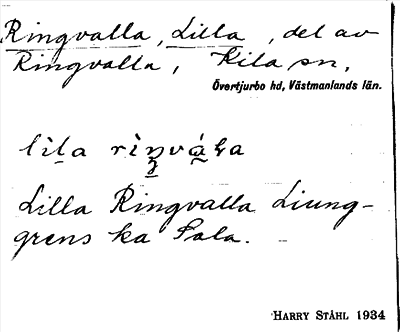 Ringvalla, Lilla, del av
Ringvalla, Kila sn,
Övertjurbo hd, Västmanlands län.
Lilla Ringvalla Ljung-
grens ka Sala.
HARRY STÅHL 1934